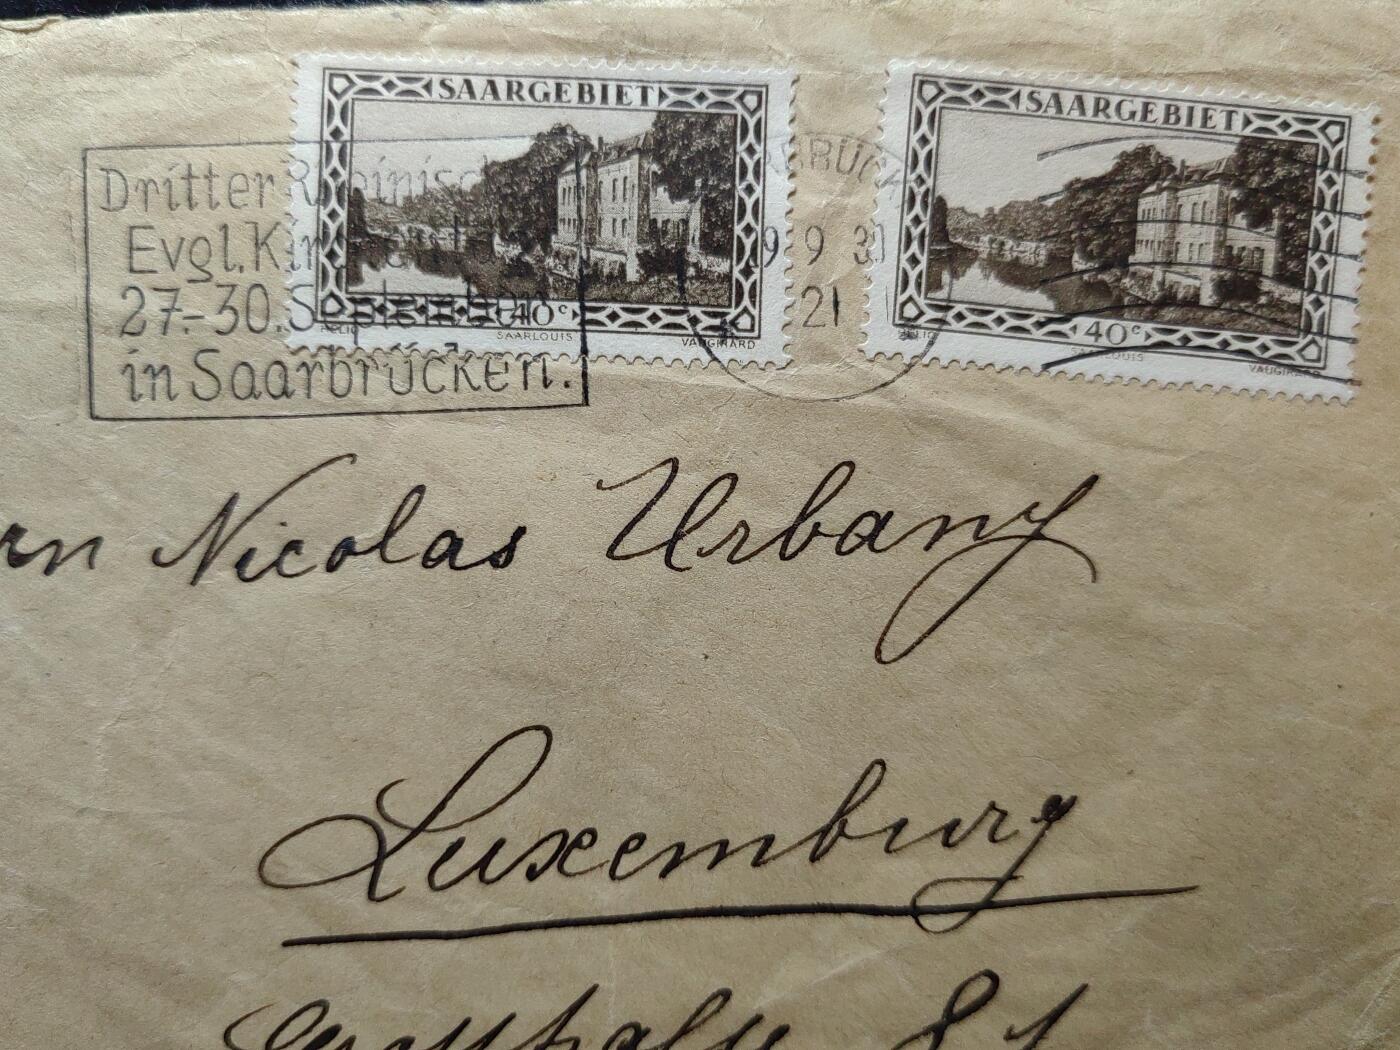 SAARGEBIET
40c
HELIO SAARLOUIS VAUGIRARD
SAARGEBIET
40c
HELIO SAARLOUIS VAUGIRARD
Dritter Rheinisch
Evgl.
27.-30. September
in Saarbrücken.
BRÜCK
9 9 31
21
rn Nicolas Urbany
Luxemburg